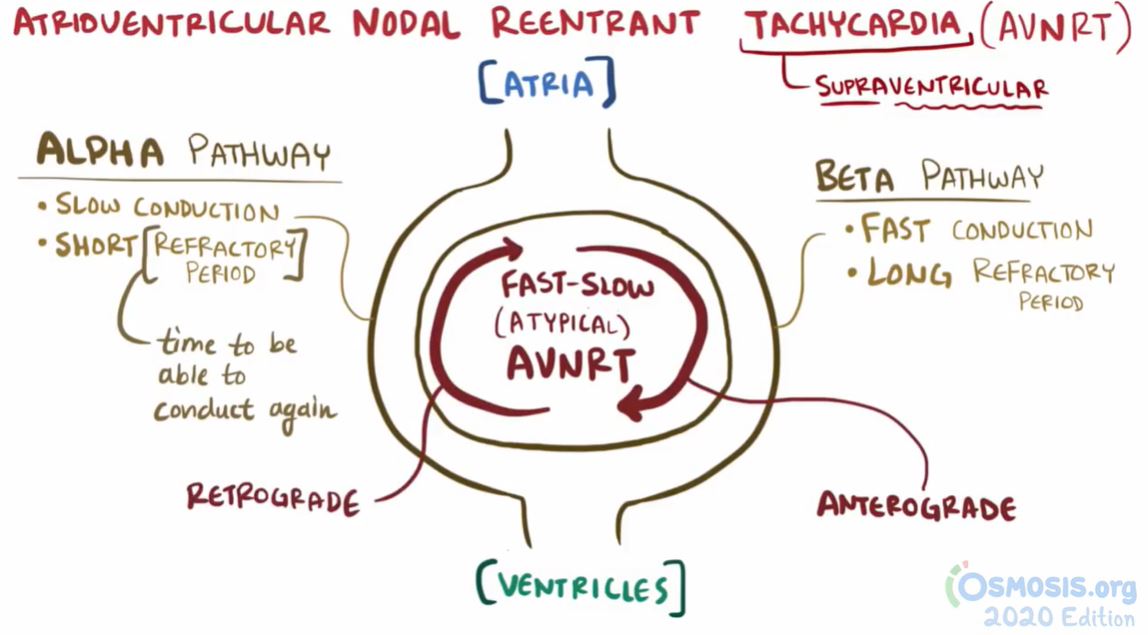 ATRIOVENTRICULAR NODAL REENTRANT TACHYCARDIA (AVNRT)
SUPRAVENTRICULAR
[ATRIA]
ALPHA PATHWAY
• SLOW CONDUCTION
• SHORT [REFRACTORY
PERIOD]
time to be
able to
conduct again
BETA PATHWAY
• FAST CONDUCTION
• LONG REFRACTORY
PERIOD
FAST-SLOW
(ATYPICAL)
AVNRT
RETROGRADE
ANTEROGRADE
[VENTRICLES]
OSMOSIS.org
2020 Edition